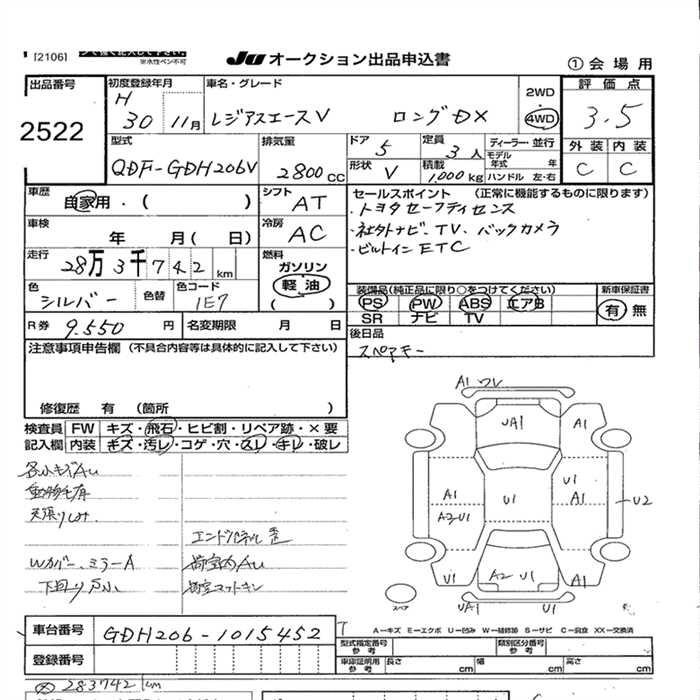 [2106]
※水性ペン不可
JU オークション出品申込書
① 会場用
出品番号
2522
初度登録年月
H 30 11月
車名・グレード
レジアスエースV ロングDX
2WD
4WD
評価点
3.5
型式
QDF-GDH206V
排気量
2800 CC
ドア 5
定員 3人
形状 V
積載 1,000 kg
ディーラー・並行
モデル年式 年
ハンドル 左・右
外装 内装
C C
車歴
自家用・( )
シフト AT
セールスポイント (正常に機能するものに限ります)
・トヨタセーフティセンス
・社外ナビ、TV、バックカメラ
・ビルトインETC
車検
年 月( 日)
冷房 AC
走行
28万3千742 km
燃料
ガソリン
軽油
( )
色 シルバー
色替
色コード 1E7
装備品(純正品に限り○をつけてください)
PS PW ABS エアB
SR ナビ TV
新車保証書
有 無
R券 9.550 円
名変期限 月 日
後日品
スペアキー
注意事項申告欄 (不具合内容等は具体的に記入して下さい)
修復歴 有 (箇所 )
検査員記入欄
FW キズ・飛石・ヒビ割・リペア跡・×要
内装 キズ・汚レ・コゲ・穴・スレ・キレ・破レ
各小キズAU
動物毛有
天張りシミ
Wカバー、ミラーA
エンドパネル歪
荷室内AU
下回りサビ
A1 ワレ
UA1
A1
A1
U1
U1
A1
U2
A2U1
U1
A2 U1
A1
スペア
UA1
U1
車台番号
GDH206-1015452
登録番号
A=キズ E=エクボ U=凹み W=補修跡 S=サビ C=腐食 XX=交換済
型式指定番号 参考
類別区分番号 参考
車庫証明用 参考
長さ cm
幅 cm
高さ cm
283742km